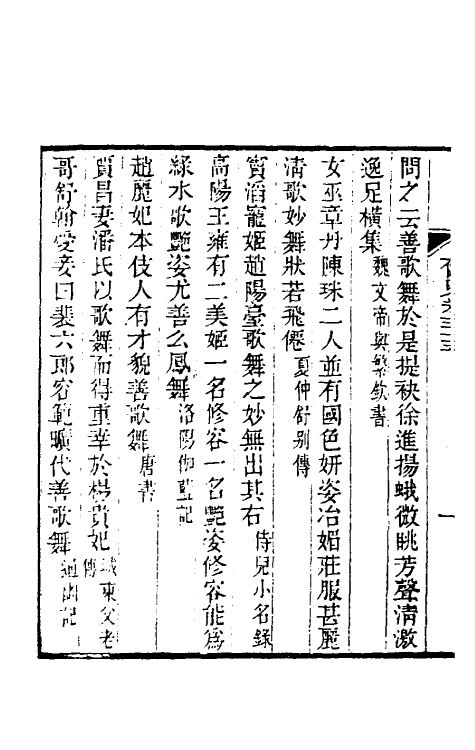 問之云善歌舞於是提袂徐進揚蛾微眺芳聲清激
逸足橫集魏文帝與繁欽書
女巫章丹陳珠二人並有國色妍姿冶媚莊服甚麗
淸歌妙舞狀若飛僊夏仲舒別傳
竇滔寵姬趙陽臺歌舞之妙無出其右侍兒小名錄
高陽王雍有二美姬一名修容一名艷姿修容能爲
綠水歌艷姿尤善么鳳舞洛陽伽藍記
趙麗妃本伎人有才貌善歌舞唐書
賈昌妻潘氏以歌舞而得重幸於楊貴妃城東父老傳
哥舒翰愛妾曰裴六郎容範曠代善歌舞通幽記